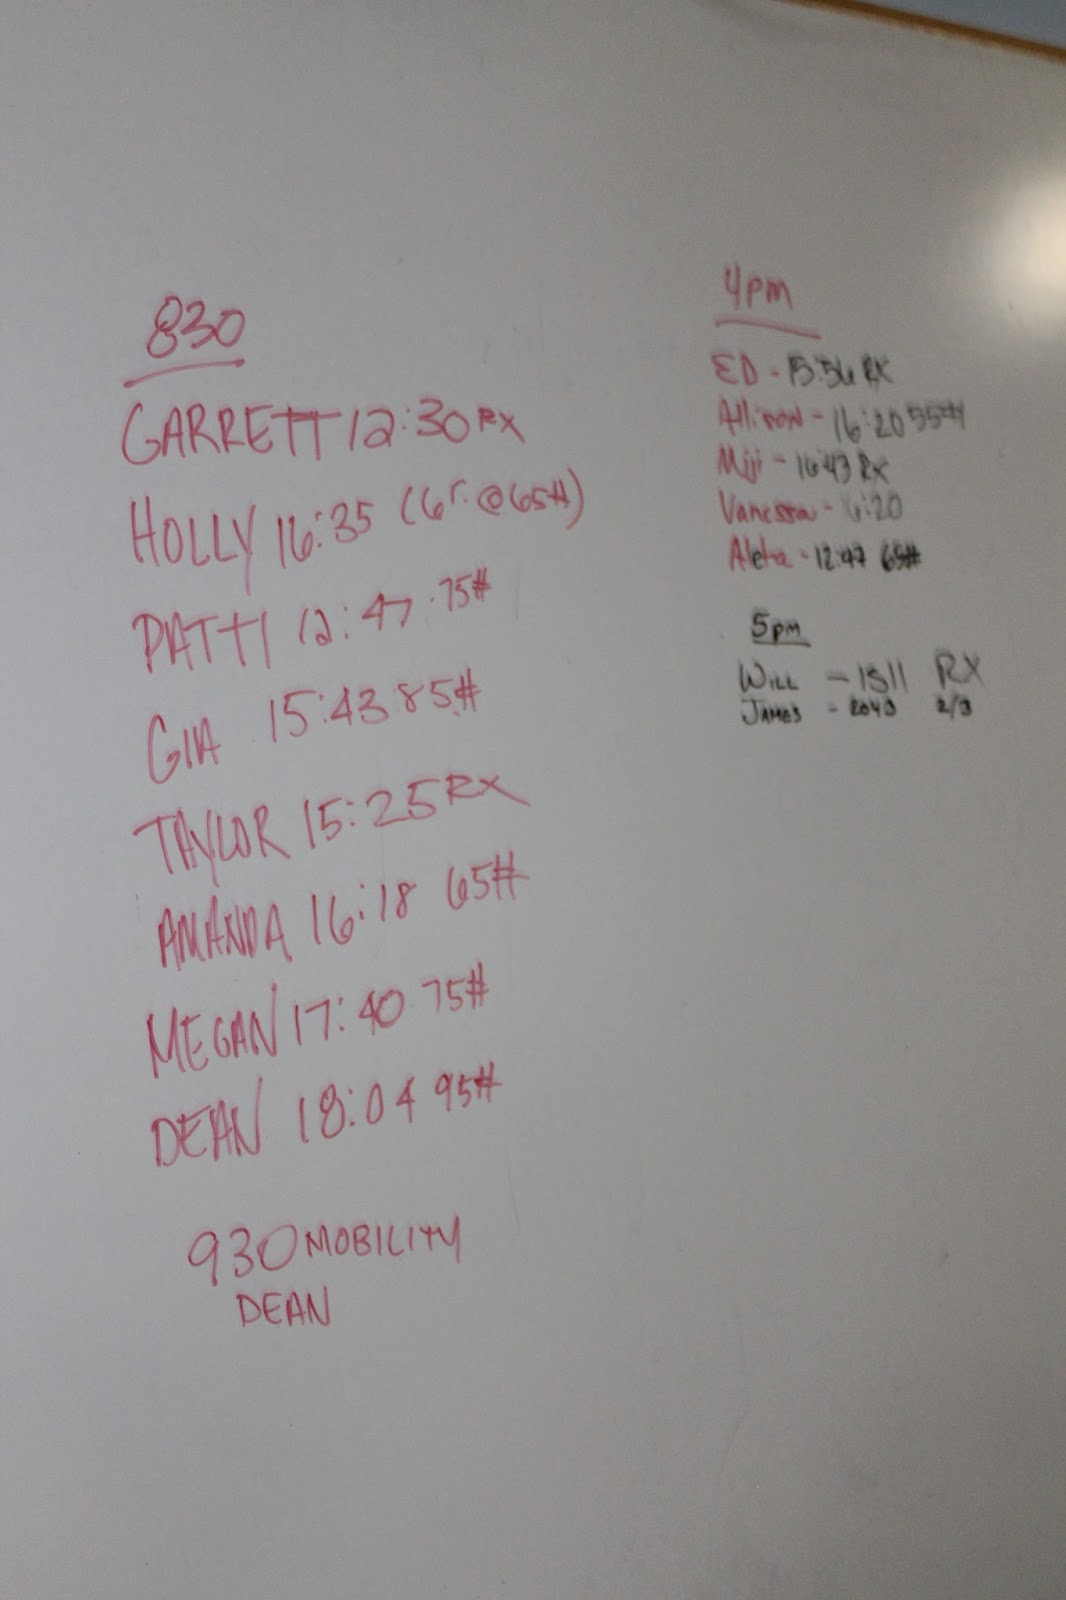 830
GARRETT 12:30 RX
HOLLY 16:35 (6r. @65#)
PATTI 12:47 75#
GIA 15:43 85#
TAYLOR 15:25 RX
AMANDA 16:18 65#
MEGAN 17:40 75#
DEAN 18:04 95#
930 MOBILITY
DEAN
4pm
ED - 15:56 RX
Allison - 16:20 55#
Miji - 16:43 RX
Vanessa -
Aleta - 12:47 65#
5pm
WILL - 1511 RX
JAMES - 2043 2/3